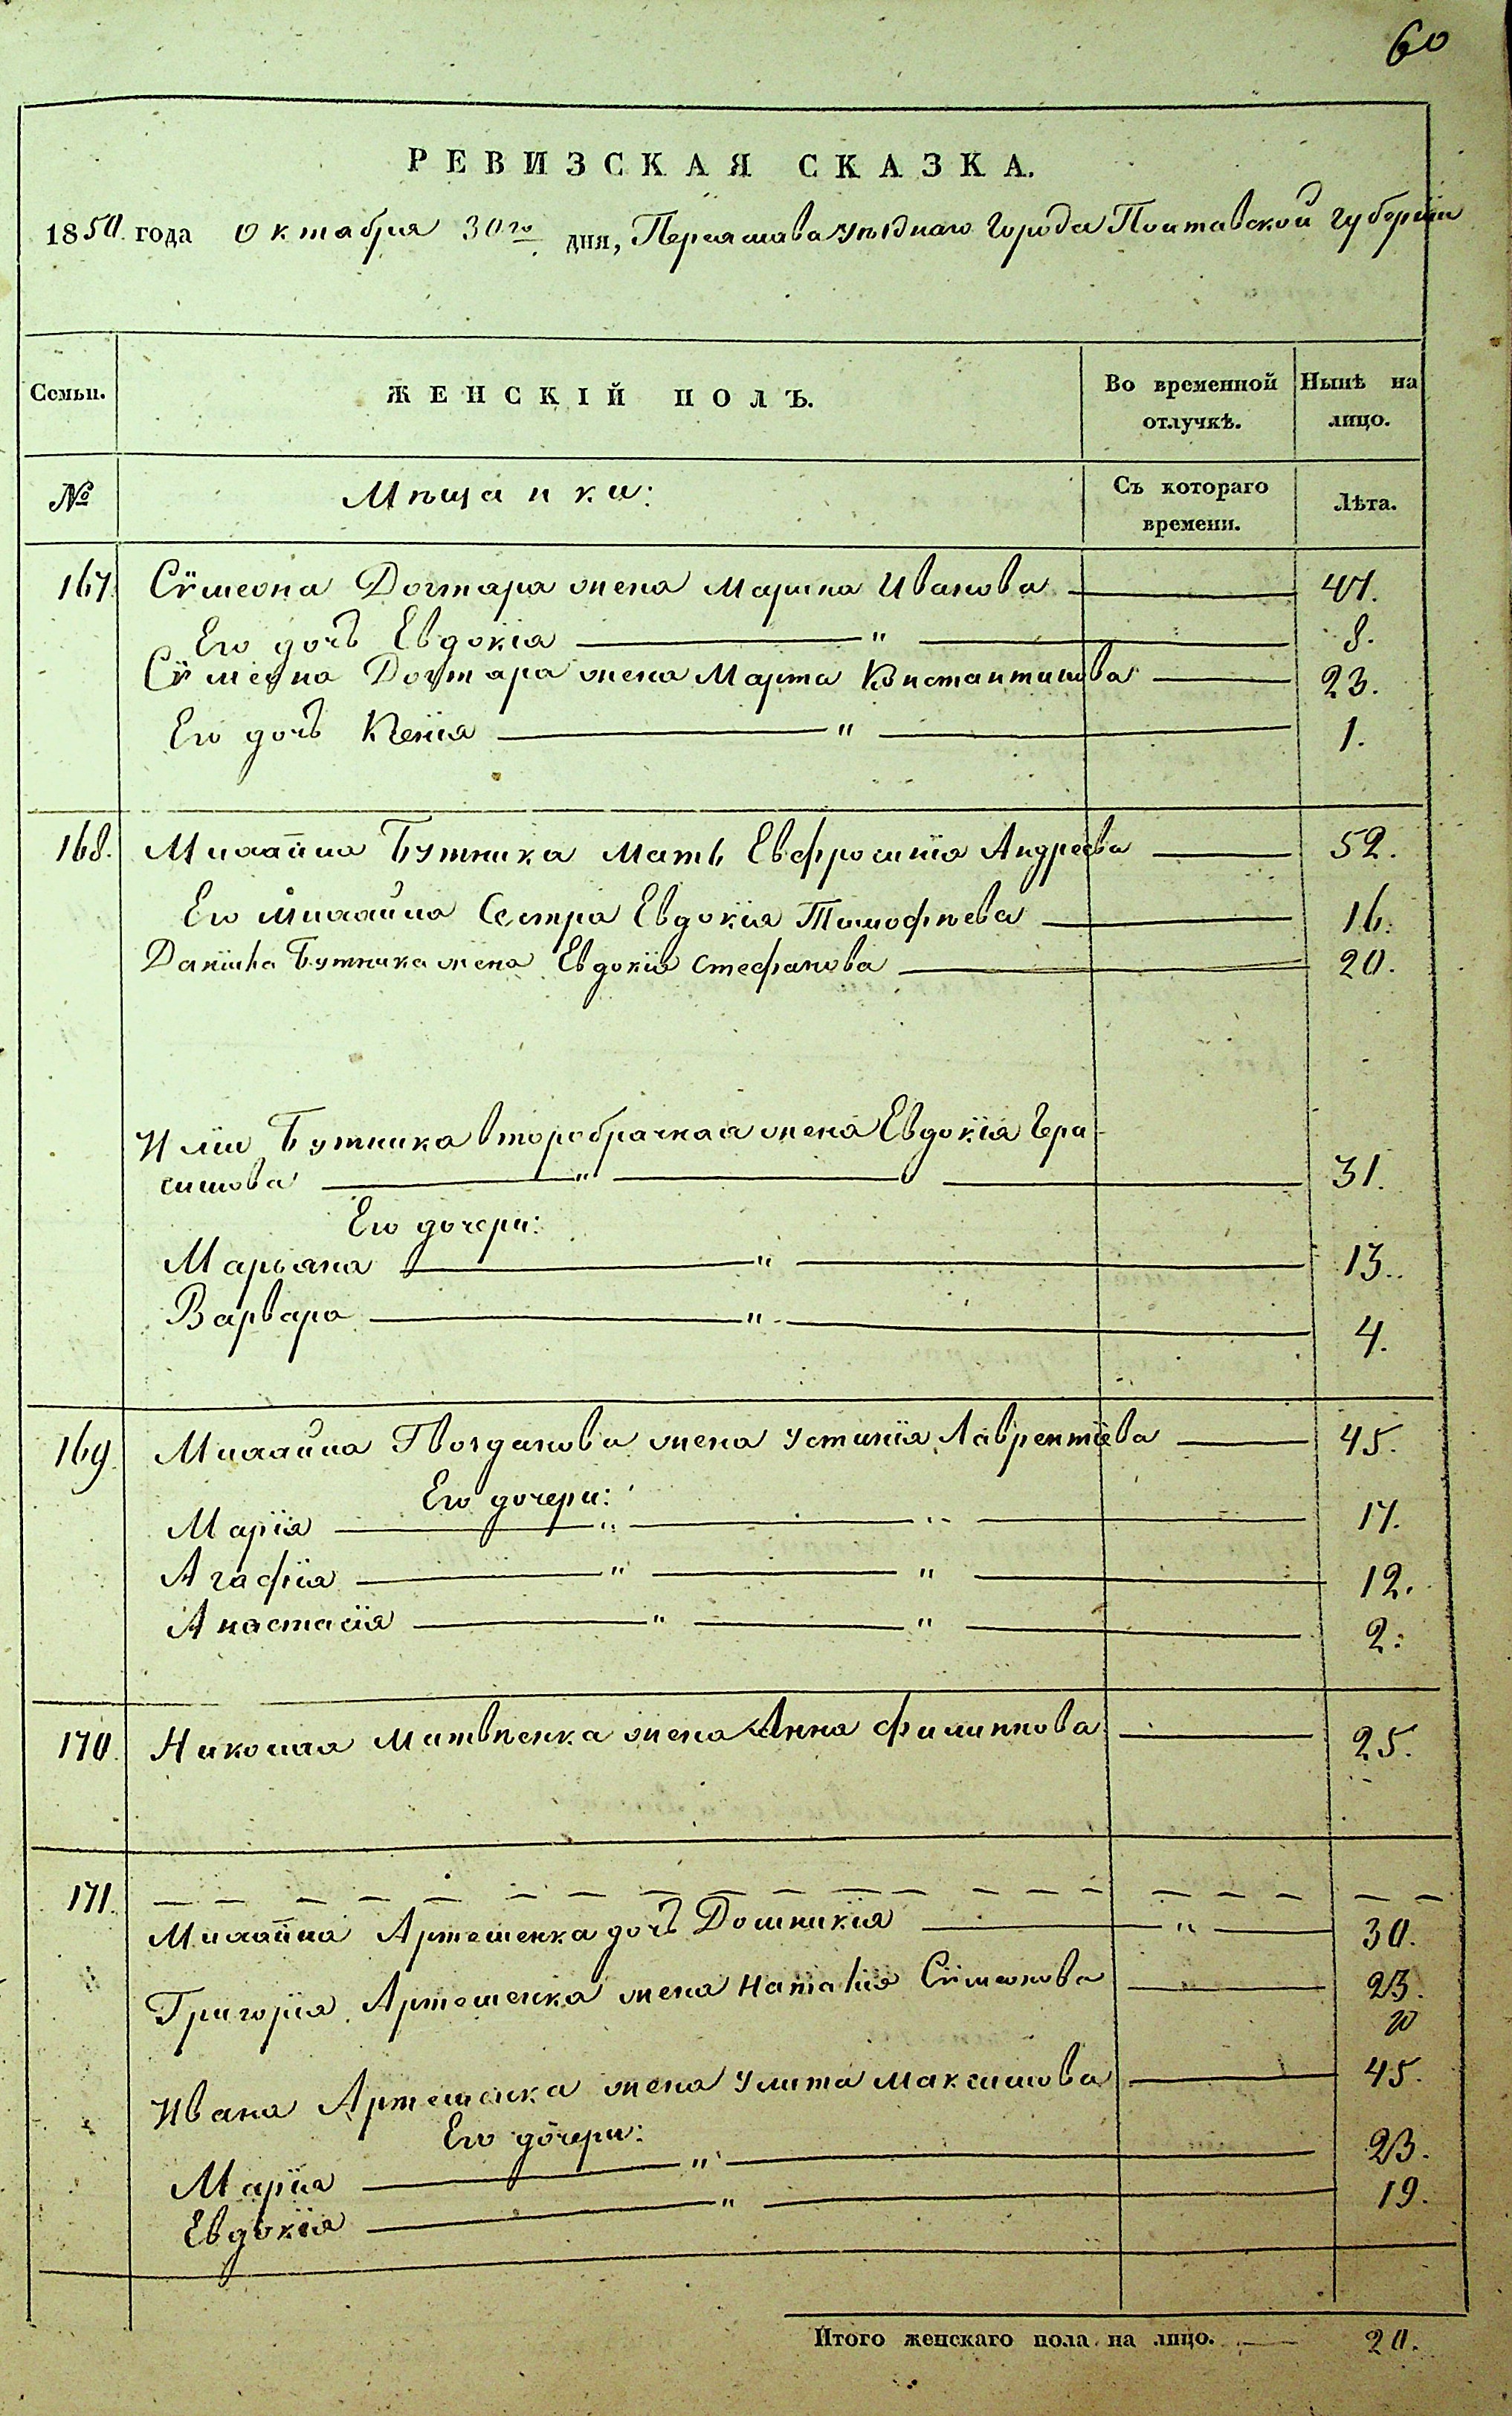 60
РЕВИЗСКАЯ СКАЗКА.
1850 года октября 30го дня, Переяслава уѣзднаго города Полтавской губернiи
Семьи. ЖЕНСКIЙ ПОЛЪ. Во временной отлучкѣ. Нынѣ на лицо.
№ Мѣщанки: Съ котораго времени. Лѣта.
167. Сѵмеона Догтара жена Марина Иванова 47.
Его дочь Евдокiя " 8.
Сѵмеона Догтара жена Марта Константинова 23.
Его дочь Ксенiя " 1.
168. Михаила Бутника мать Евфросинiя Андреева 52.
Его Михайла сестра Евдокiя Тимофѣева 16.
Данiила Бутника жена Евдокiя Стефанова 20.
Илiи Бутника второбрачная жена Евдокiя Гера-
симова " 31.
Его дочери:
Марьяна " 13.
Варвара " 4.
169. Михайла Гвозданова жена Устинiя Лаврентiева 45.
Его дочери:
Марiя " " 17.
Агафiя " " 12.
Анастасiя " " 2.
170. Николая Матвѣенка жена Анна Филиппова 25.
171.
Михайла Артеменка дочь Домникiя " 30.
Григорiя Артеменка жена Наталiя Сѵмеонова 23.
20
Ивана Артеменка жена Улита Максимова 45.
Его дочери:
Марiя " 23.
Евдокiя " 19.
Итого женскаго пола на лицо. 20.